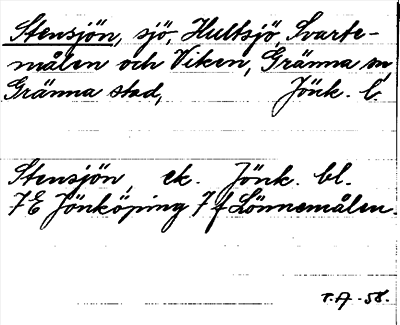 Stensjön, sjö, Hultsjö, Svarte-
målen och Viken, Gränna sn,
Gränna stad, Jönk. l.
Stensjön, ek. Jönk. bl.
7E Jönköping 7f Lönnemålen.
T.A. -58.